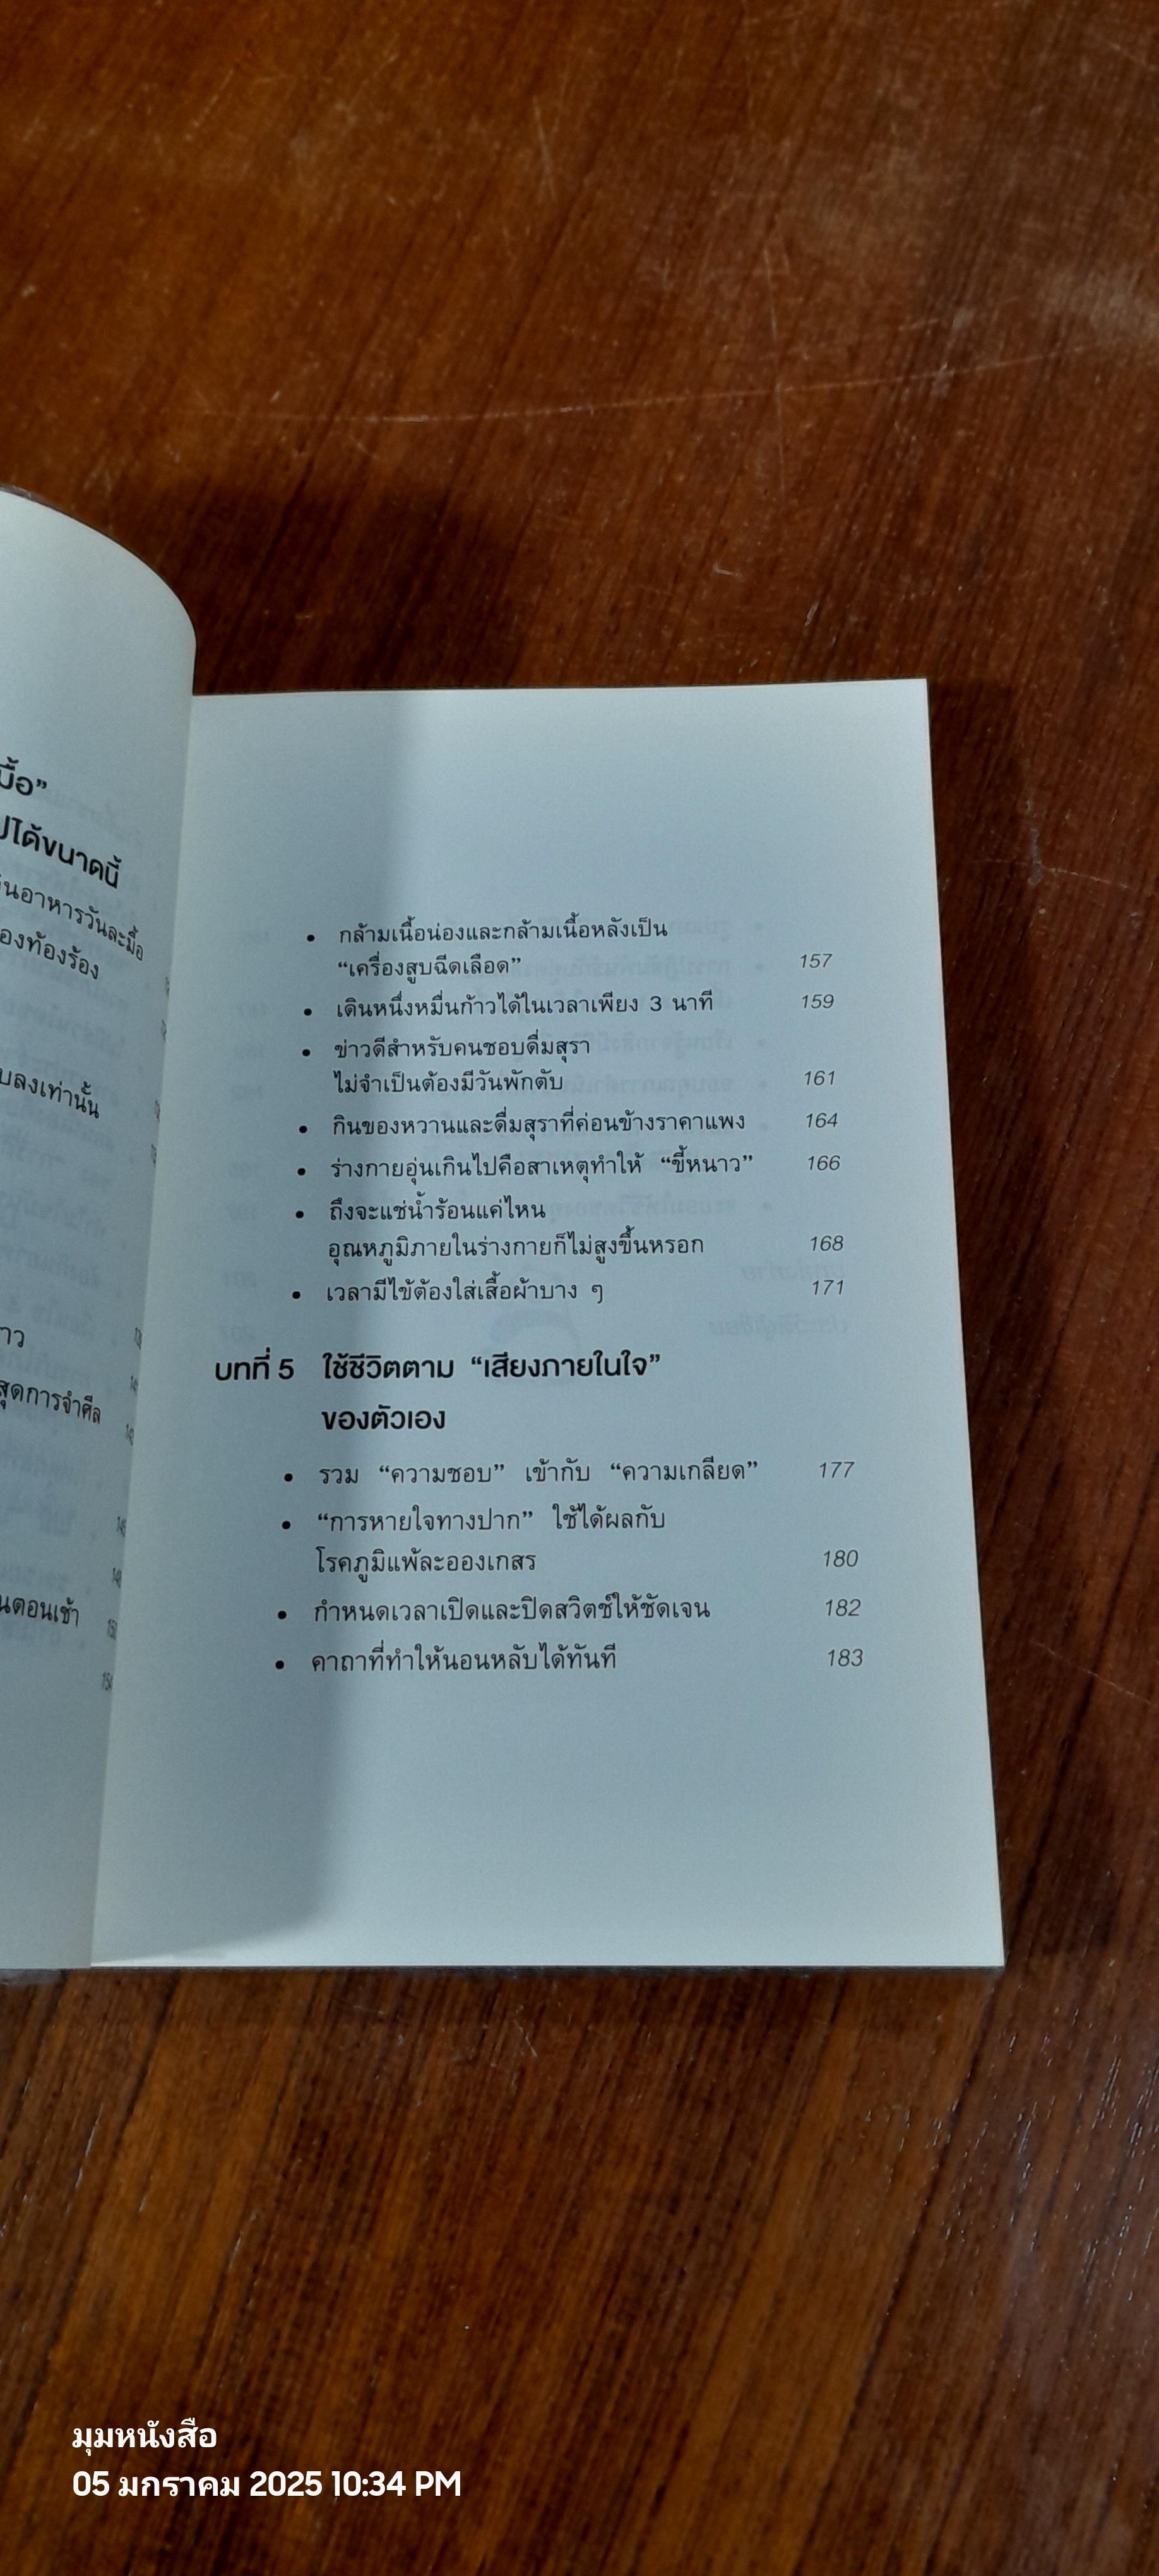 มื้อ”
ได้ขนาดนี้
อาหารวันละมื้อ
ท้องร้อง
ลงเท่านั้น
สุดการจำศีล
ตอนเช้า
• กล้ามเนื้อน่องและกล้ามเนื้อหลังเป็น
“เครื่องสูบฉีดเลือด” 157
• เดินหนึ่งหมื่นก้าวได้ในเวลาเพียง 3 นาที 159
• ข่าวดีสำหรับคนชอบดื่มสุรา
ไม่จำเป็นต้องมีวันพักตับ 161
• กินของหวานและดื่มสุราที่ค่อนข้างราคาแพง 164
• ร่างกายอุ่นเกินไปคือสาเหตุทำให้ “ขี้หนาว” 166
• ถึงจะแช่น้ำร้อนแค่ไหน
อุณหภูมิภายในร่างกายก็ไม่สูงขึ้นหรอก 168
• เวลามีไข้ต้องใส่เสื้อผ้าบาง ๆ 171
บทที่ 5 ใช้ชีวิตตาม “เสียงภายในใจ”
ของตัวเอง
• รวม “ความชอบ” เข้ากับ “ความเกลียด” 177
• “การหายใจทางปาก” ใช้ได้ผลกับ
โรคภูมิแพ้ละอองเกสร 180
• กำหนดเวลาเปิดและปิดสวิตช์ให้ชัดเจน 182
• คาถาที่ทำให้นอนหลับได้ทันที 183
มุมหนังสือ
05 มกราคม 2025 10:34 PM